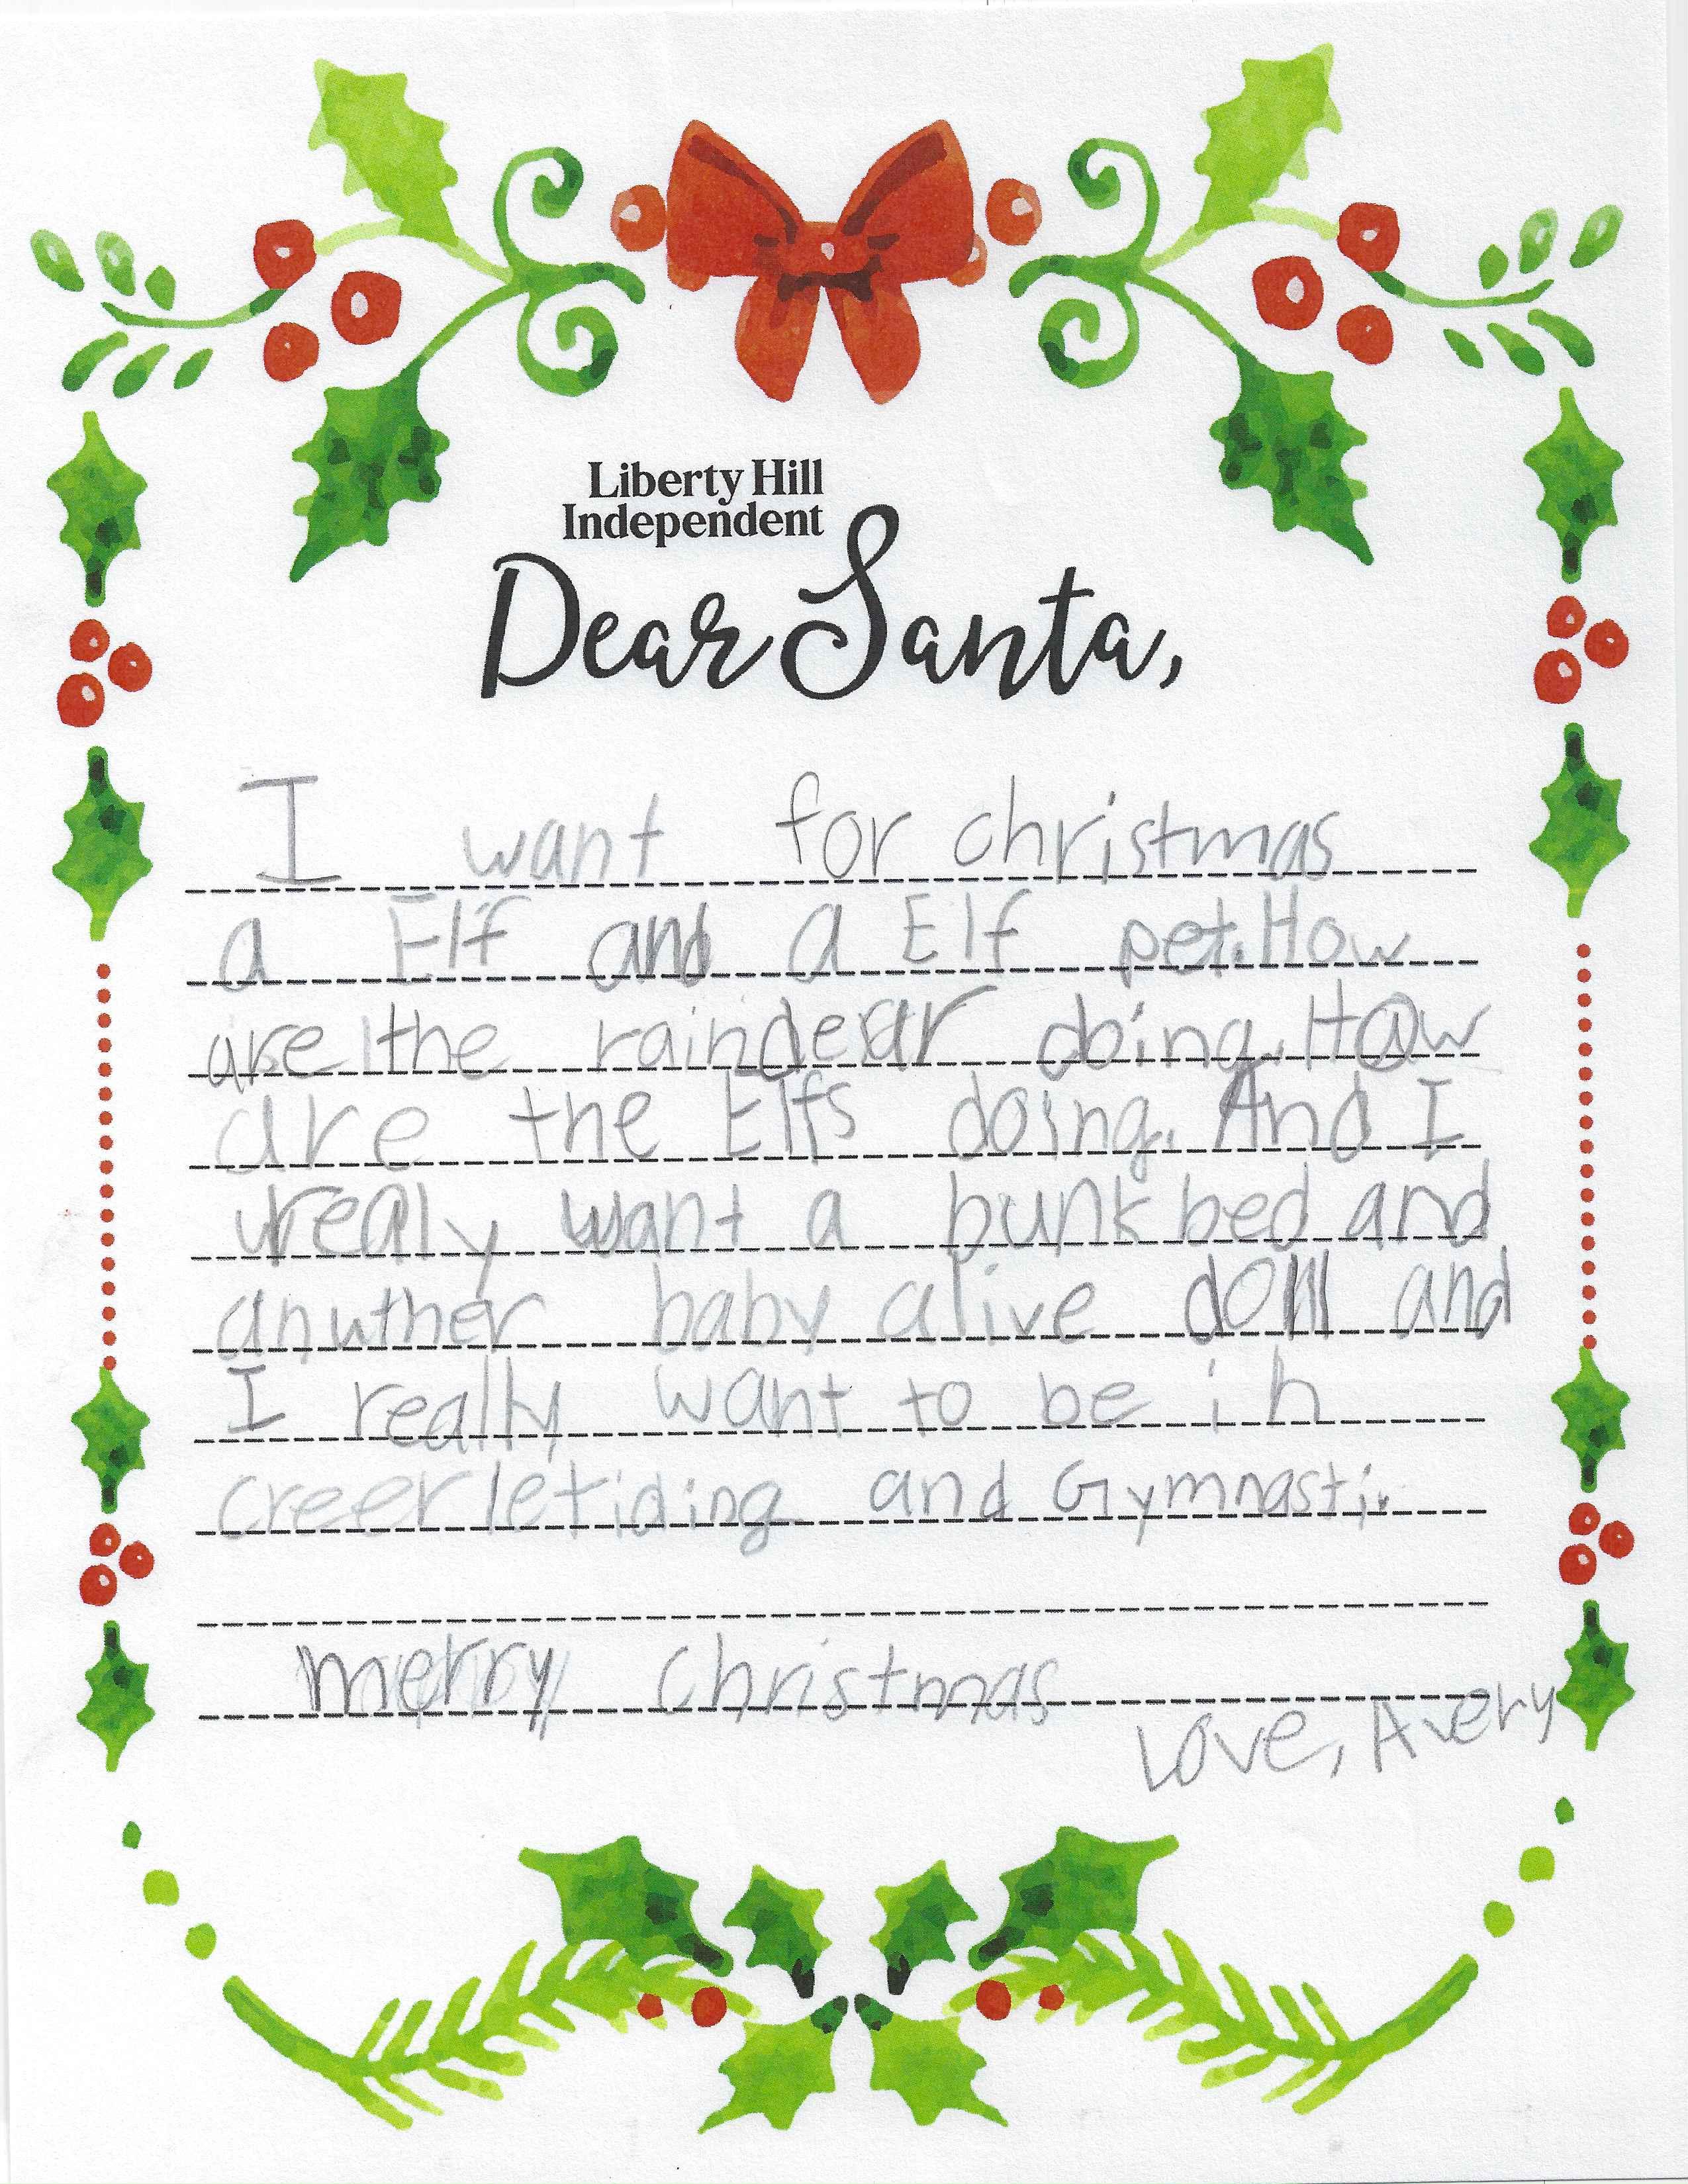 Liberty Hill
Independent
Dear Santa,
I want for christmas
a Elf and a Elf pet. How
are the raindear doing. How
are the Elfs doing. And I
realy want a bunk bed and
anuther baby alive doll and
I really want to be in
creerletiding and Gymnasti.
merry christmas
Love, Avery